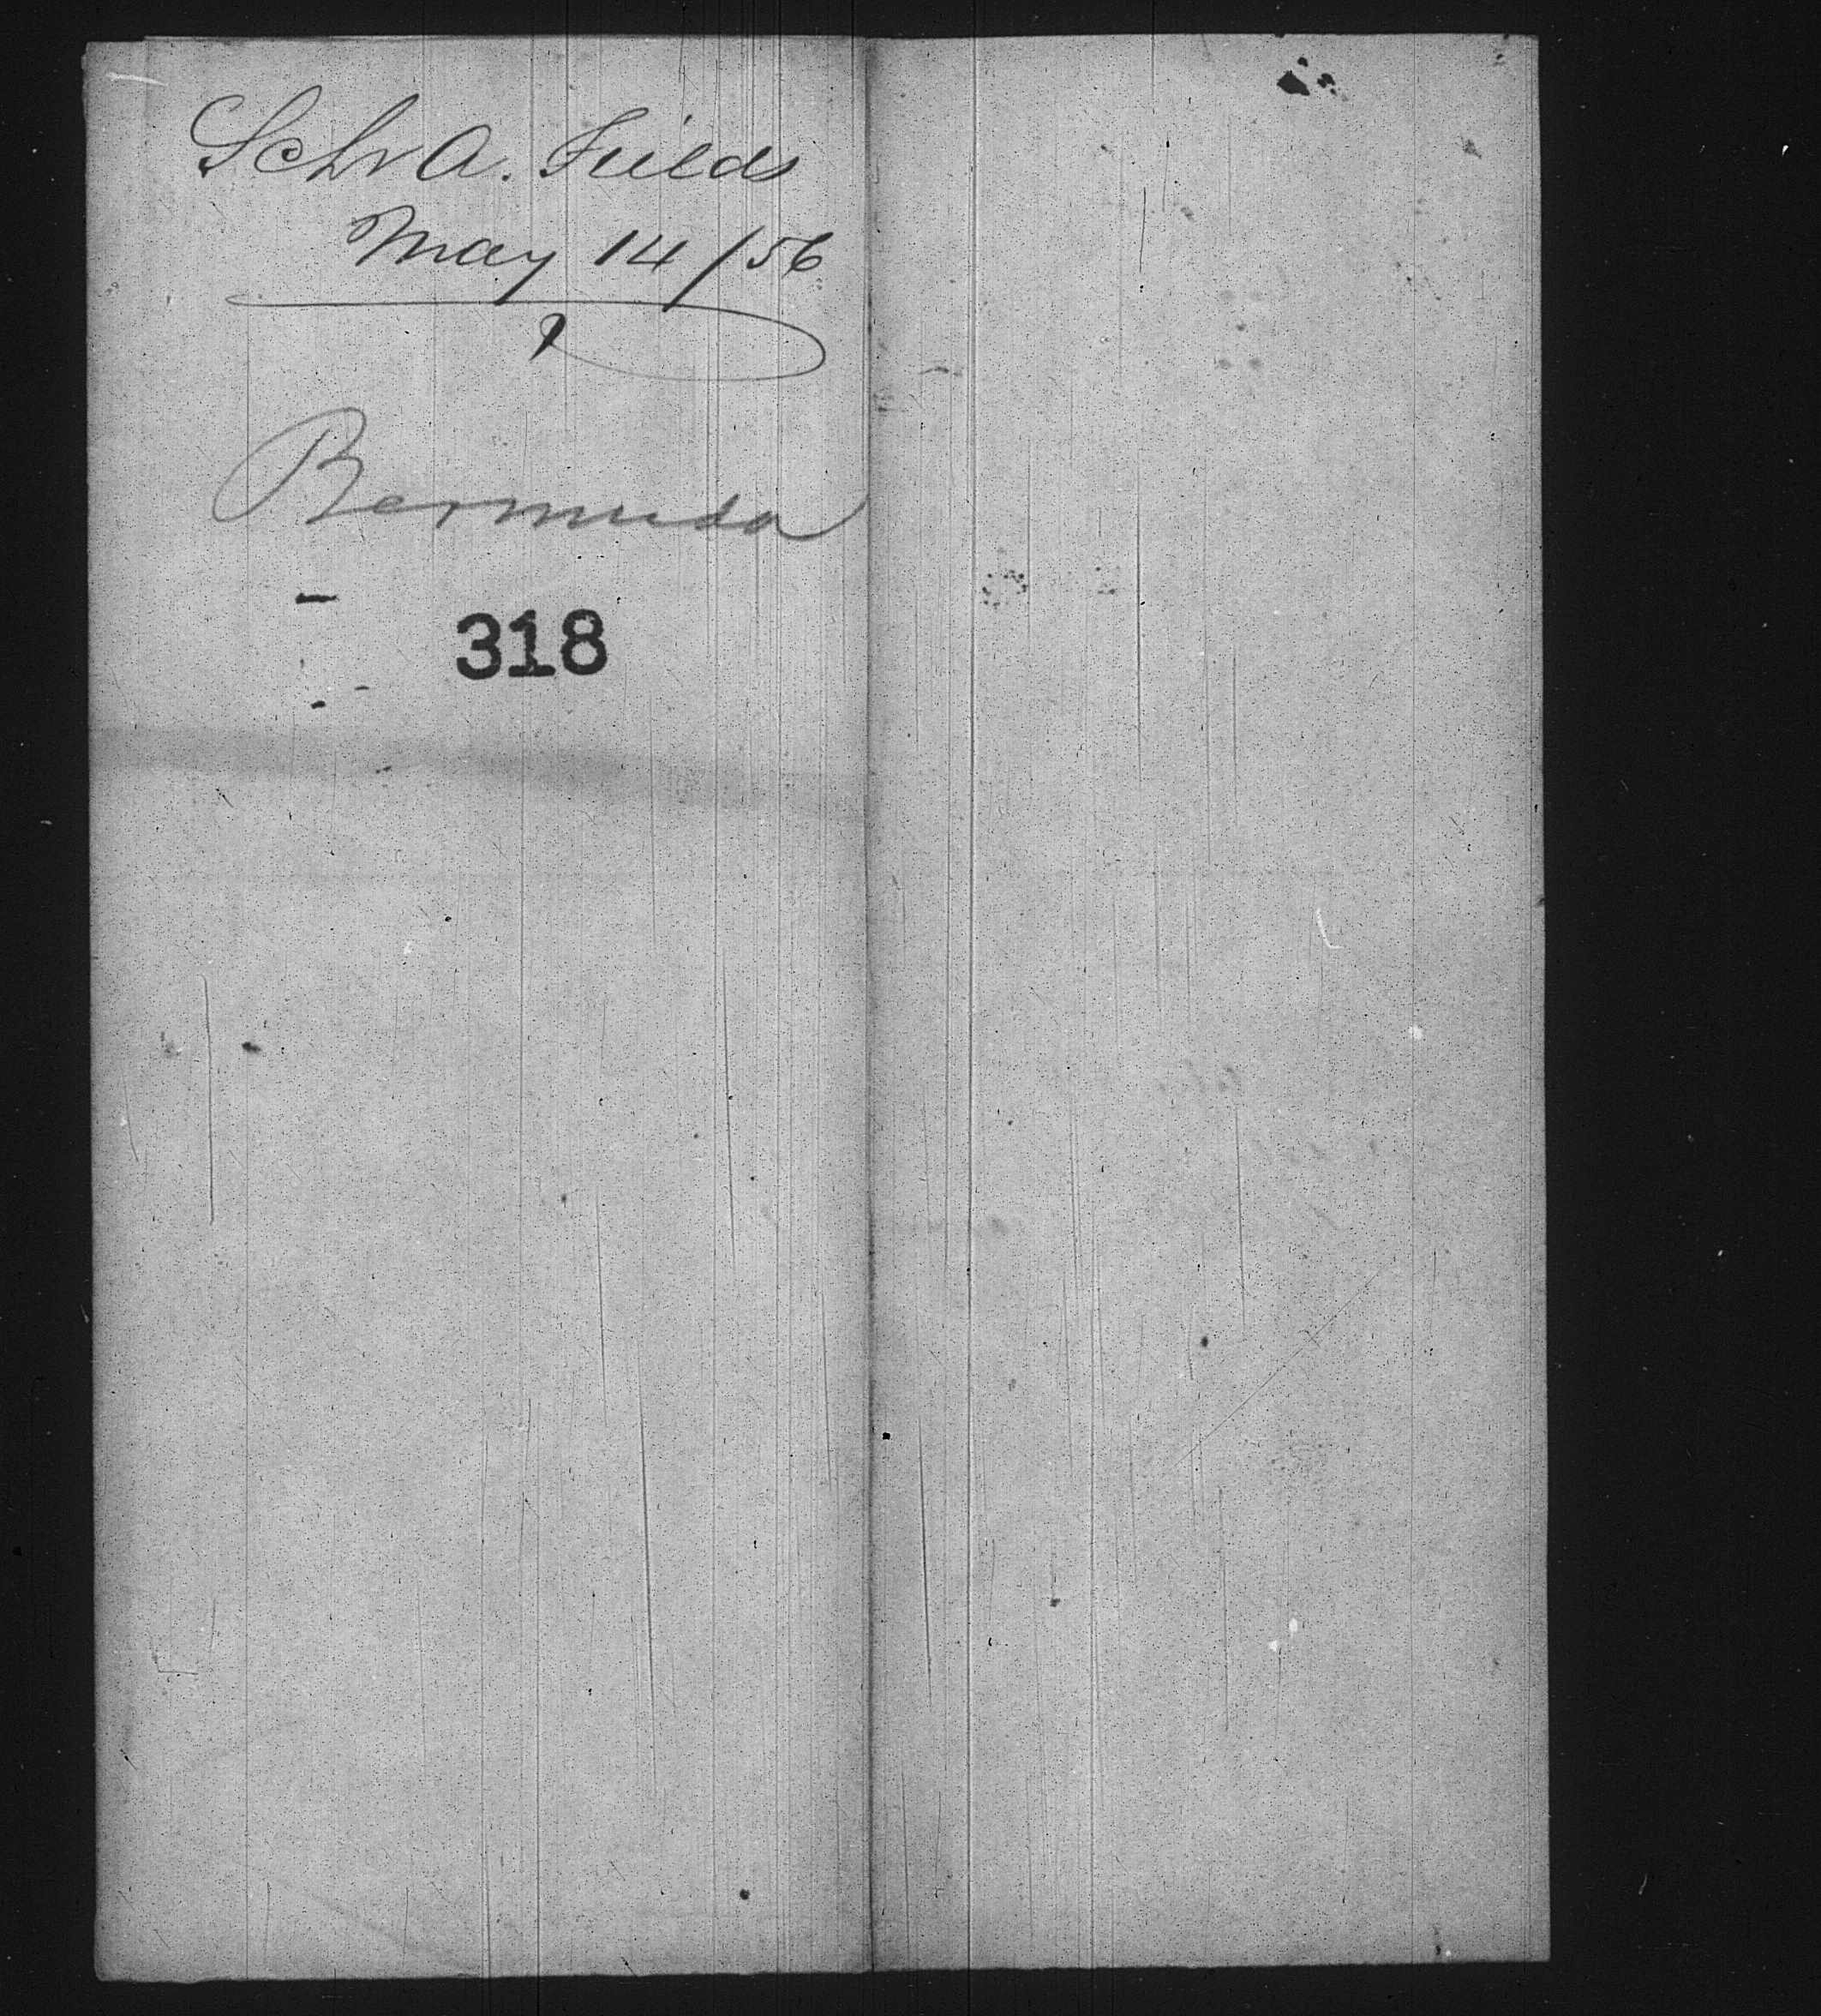 Schr A. Feilds
May 14/56
Bermuda
318